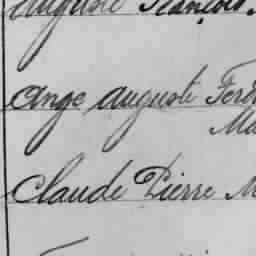 Auguste François.
Ange Auguste Ferd
Ma
Claude Pierre M